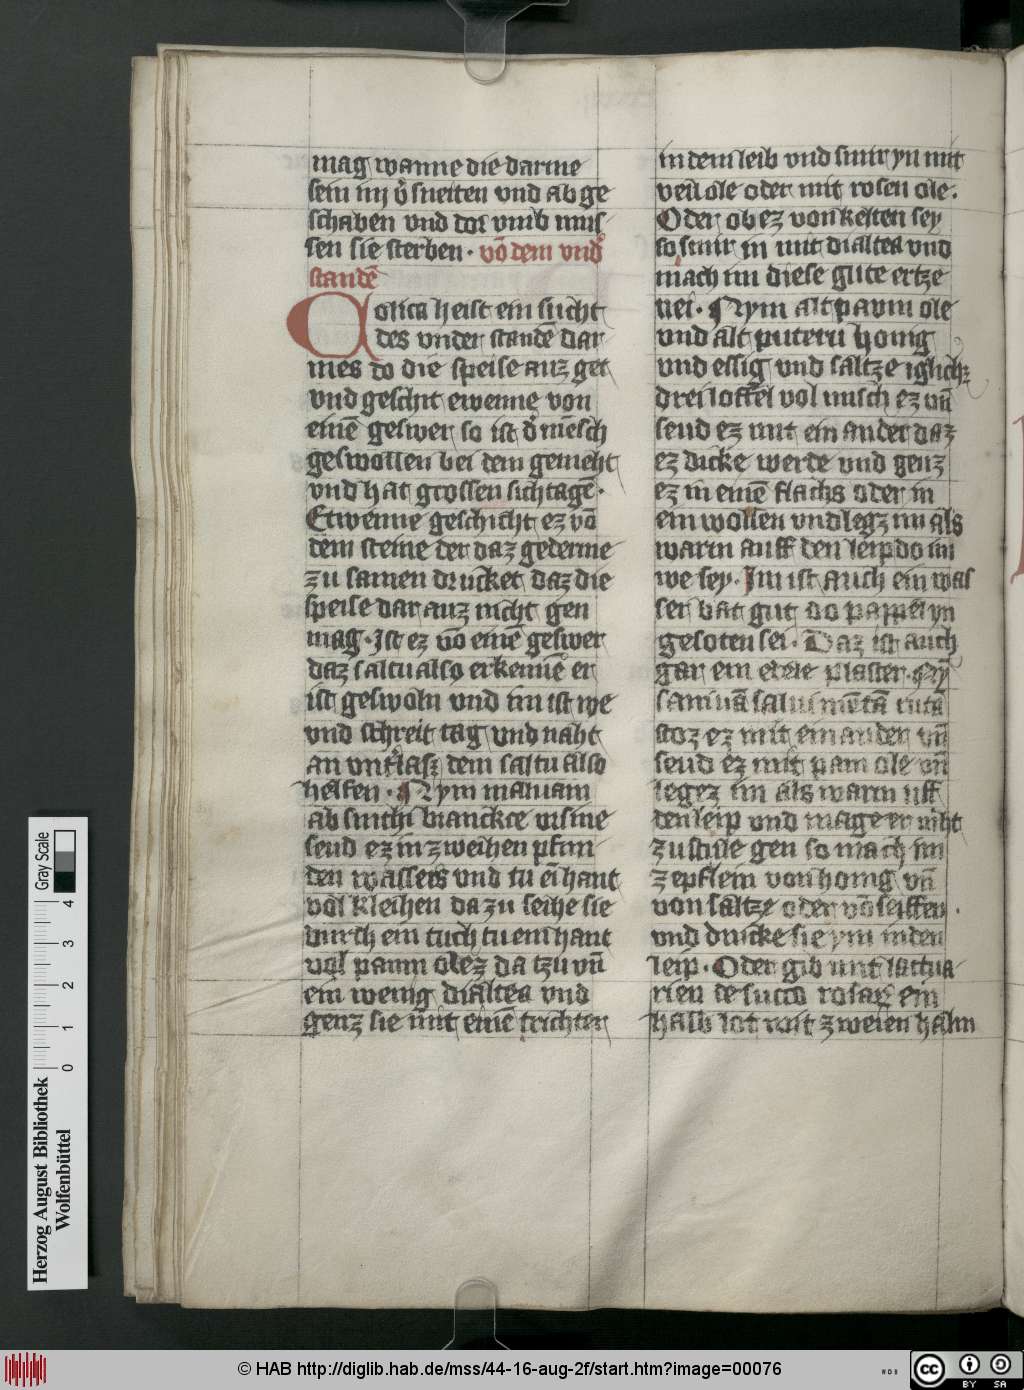 mag wanne die darme
sein im v͛sneiten vnd ab ge
schaben vnd dor vmb mus
sen sie sterben · vō dem vnd͛
standē
Colica heist ein sucht
des vnder standē dar
mes do die speise auz get
vnd geschit ewenne von
einē geswer so ist d͛ mēsch
geswollen bei dem gemeht
vnd hat grossen sichtagē ·
Etwenne geschicht ez vō
dem steine der daz gederme
zu samen drucket daz die
speise dar auz nicht gen
mag · Ist ez vō einē geswer
daz saltu also erkennē er
ist geswoln vnd im ist we
vnd schreit tag vnd naht
an vnt͛las dem saltu also
helfen · Nym maluam
ab sinthi branckce vrsine
send ez in zweihen pfun
den wassers vnd tu ei hant
vol kleihen da zu seihe sie
durch ein tuch tu ein hant
vol paum olez da tzu vn̄
ein wenig dialtea vnd
genz sie mit einē trichter
in dem leib vnd smir yn mit
veil ole oder mit rosen ole ·
Oder ob ez von kelten sey
so smir in mit dialtea vnd
mach im diese gute ertze
nei · Nym alt paum ole
vnd alt putern honig
vnd essig vnd saltze iglichz
drei loffel vol misch ez vn̄
send ez mit ein ander daz
ez dicke werde vnd genz
ez in einē flachs oder in
ein wollen vnd legz im als
warm auff den leip do im
we sey · Im ist auch ein was
ser bat gut do pappel yn
gesoten sei · Daz ist auch
gar ein edele plaster · Ny̅
sauinā salui mētā rutā
stoz ez mit ein ander vn̄
send ez mit pam ole vn̄
legez im als warm uff
den leip vnd mage er niht
zu stule gen so mach im
zepflein von honig vn̄
von saltze oder vō seiffen ·
vnd drucke sie ym in den
leip · Oder gib im lattua
rien de succo rosaꝝ ein
halb lot mit zweien halm
Herzog August Bibliothek
Wolfenbüttel
0 1 2 3 4
Gray Scale
© HAB http://diglib.hab.de/mss/44-16-aug-2f/start.htm?image=00076
cc BY SA